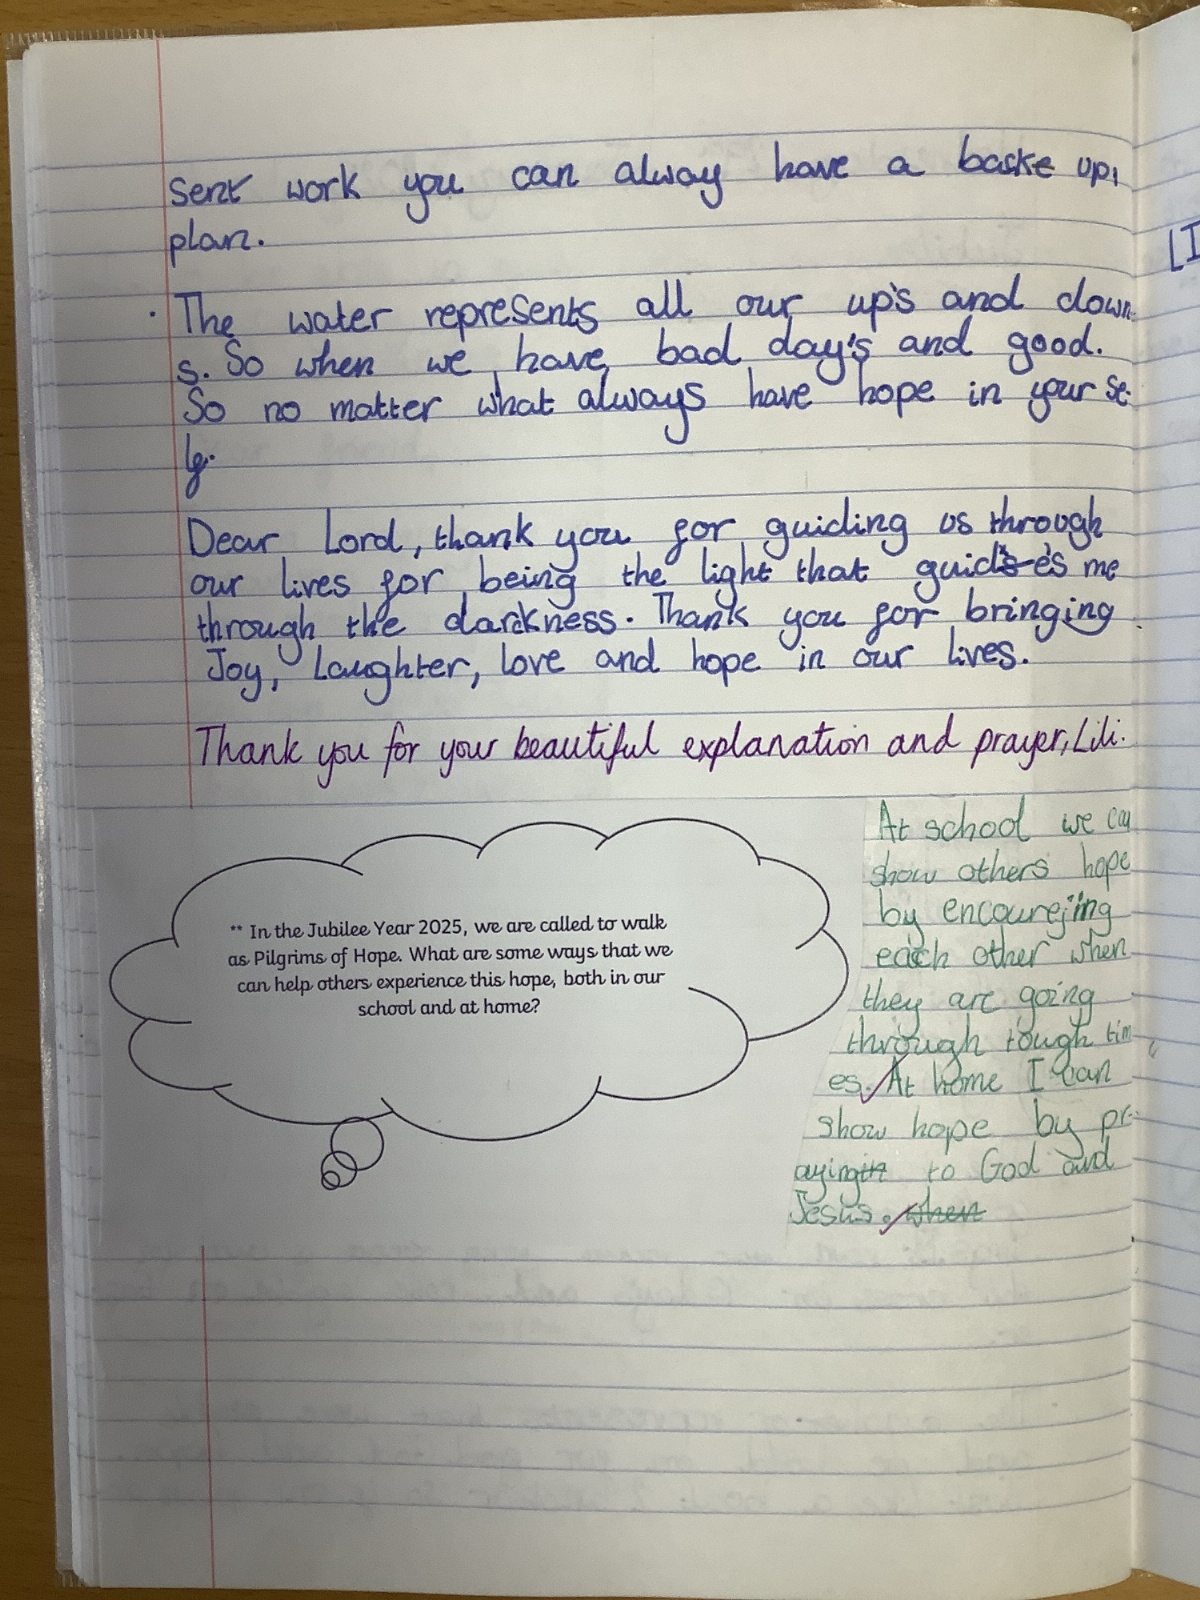 sent work you can alway have a baske up,
plan.
· The water represents all our up's and down
s. So when we have bad day's and good.
So no matter what always have hope in your se
lf.
Dear Lord, thank you for guiding us through
our lives for being the light that guides me
through the darkness. Thank you for bringing
Joy, Laughter, love and hope in our lives.
Thank you for your beautiful explanation and prayer, Lili.
** In the Jubilee Year 2025, we are called to walk
as Pilgrims of Hope. What are some ways that we
can help others experience this hope, both in our
school and at home?
At school we can
show others hope
by encourejing
each other when
they are going
through tough tim
es. At home I can
show hope by pr-
aying to God and
Jesus. when
[I